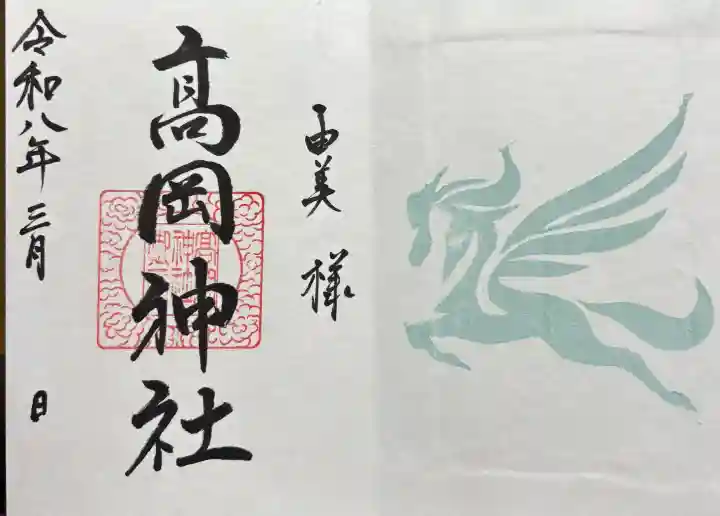 由美 様
髙岡神社
令和八年 三月 日